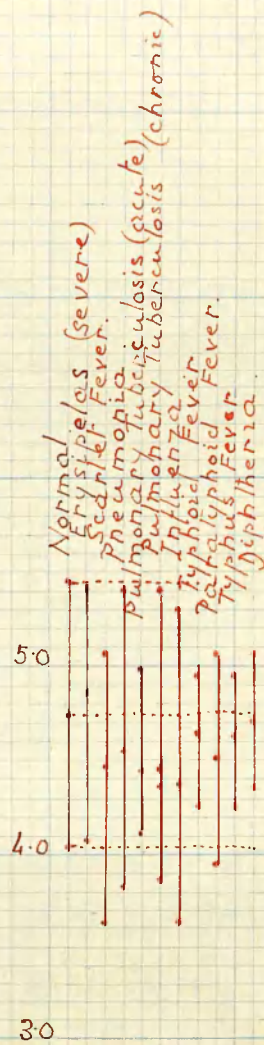 Normal
Erysipelas (severe)
Scarlet Fever.
Pneumonia
Pulmonary Tuberculosis (acute)
Pulmonary Tuberculosis (chronic)
Influenza
Typhoid Fever
Paratyphoid Fever.
Typhus Fever
Diphtheria
5.0
4.0
3.0